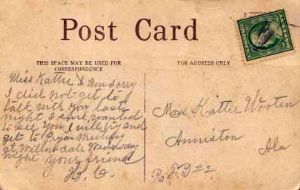 Post Card
THIS SPACE MAY BE USED FOR CORRESPONDENCE
FOR ADDRESS ONLY
Miss Kattie I am sorry
I did not get to
talk with you last
night I sure wanted
to see you I will try and
get to Prayer Meeting
at Willisdale Wednesday
night your friend
H. C.
Miss Kattie Wooten
Anniston
Ala
R.F.D. #2